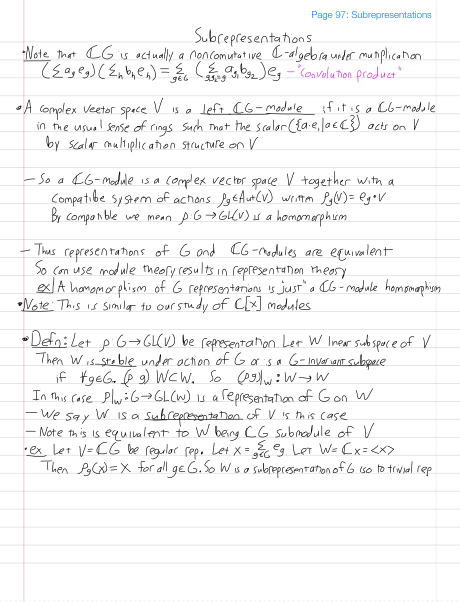 Page 97: Subrepresentations
Subrepresentations
•Note that ℂG is actually a noncomutative ℂ-algebra under multiplication
(Σ a_g e_g)(Σ_h b_h e_h) = Σ_{g∈G} (Σ_{g₁g₂=g} a_{g₁} b_{g₂}) e_g – "convolution product"
•A complex vector space V is a left ℂG-module if it is a ℂG-module
in the usual sense of rings such that the scalar ({a·e, |a∈ℂ}) acts on V
by scalar multiplication structure on V
– So a ℂG-module is a complex vector space V together with a
compatible system of actions ρ_g∈Aut(V) written ρ_g(V) = e_g·V
By compatible we mean ρ:G→GL(V) is a homomorphism
– Thus representations of G and ℂG-modules are equivalent
So can use module theory results in representation theory
ex| A homomorphism of G representations is "just" a ℂG-module homomorphism
•Note: This is similar to our study of ℂ[x] modules
•Defn: Let ρ:G→GL(V) be representation. Let W linear subspace of V
Then W is stable under action of G or is a G-invariant subspace
if ∀g∈G. (ρ g) W⊂W. So (ρg)|_W : W→W
In this case ρ|_W : G→GL(W) is a representation of G on W
– We say W is a subrepresentation of V is this case
– Note this is equivalent to W being ℂG submodule of V
•ex Let V=ℂG be regular rep. Let x = Σ_{g∈G} e_g. Let W=ℂx=<x>
Then ρ_g(x)=x for all g∈G. So W is a subrepresentation of G iso to trivial rep